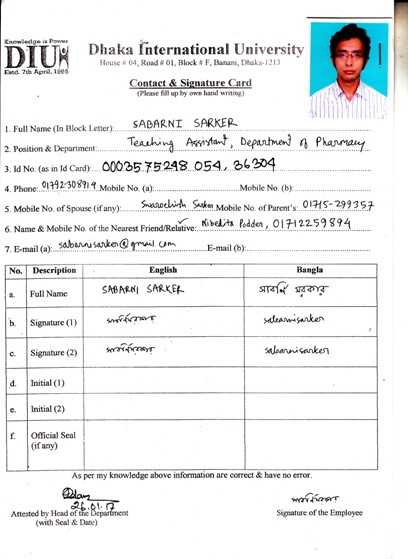 Knowledge is Power
DIU
Estd. 7th April, 1995
Dhaka International University
House # 04, Road # 01, Block # F, Banani, Dhaka-1213
Contact & Signature Card
(Please fill up by own hand writing)
1. Full Name (In Block Letter): SABARNI SARKER
2. Position & Department: Teaching Assistant, Department of Pharmacy
3. Id No. (as in Id Card): 0003575248 054, 36304
4. Phone: 01792-308914 Mobile No. (a): Mobile No. (b):
5. Mobile No. of Spouse (if any): Sarker Mobile No. of Parent's: 01715-299357
6. Name & Mobile No. of the Nearest Friend/Relative: Nibedita Podder, 01712259894
7. E-mail (a): sabarnisarker@gmail.com E-mail (b):
No. Description English Bangla
a. Full Name SABARNI SARKER সাবর্নি সরকার
b. Signature (1) sabarnisarker
c. Signature (2) sabarnisarker
d. Initial (1)
e. Initial (2)
f. Official Seal (if any)
As per my knowledge above information are correct & have no error.
26.01.17
Attested by Head of the Department
(with Seal & Date)
Signature of the Employee